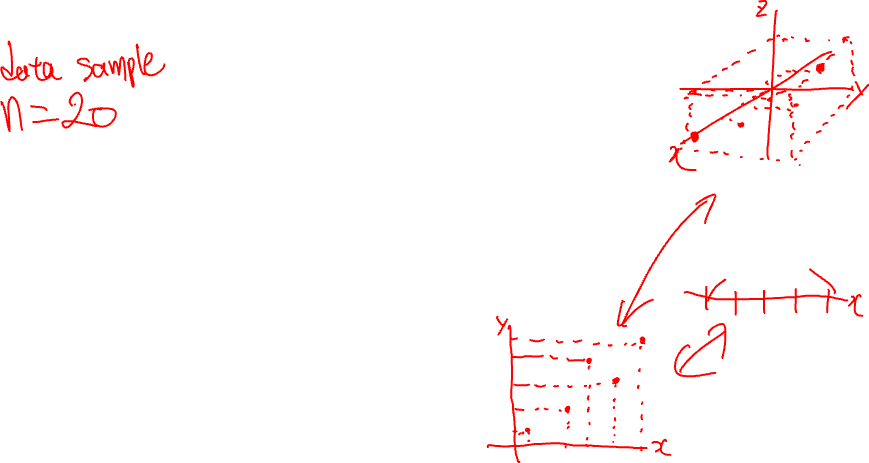 data sample
n=20
z
y
x
x
y
x